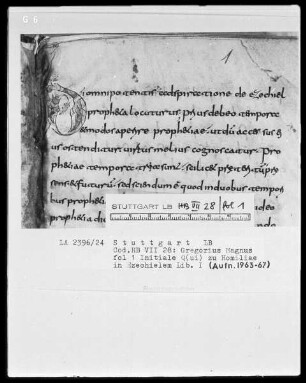 G 6
1
Di omnipotentis adspiratione de Ezechiel
propheta locuturus prius debeo tempora
et modos aperire prophetiae. ut dum accessus
eius ostenditur virtus melius cognoscatur. Pro
phetiae tempora tria sunt. scilicet praeteritum praesens
et futurum. sed sciendum est quod in duobus tempori
bus prophetia
STUTTGART LB HB VII 28 fol 1
LA 2396/24 Stuttgart LB
Cod.HB VII 28: Gregorius Magnus
fol 1 Initiale Q(ui) zu Homiliae
in Ezechielem Lib. I (Aufn. 1963-67)